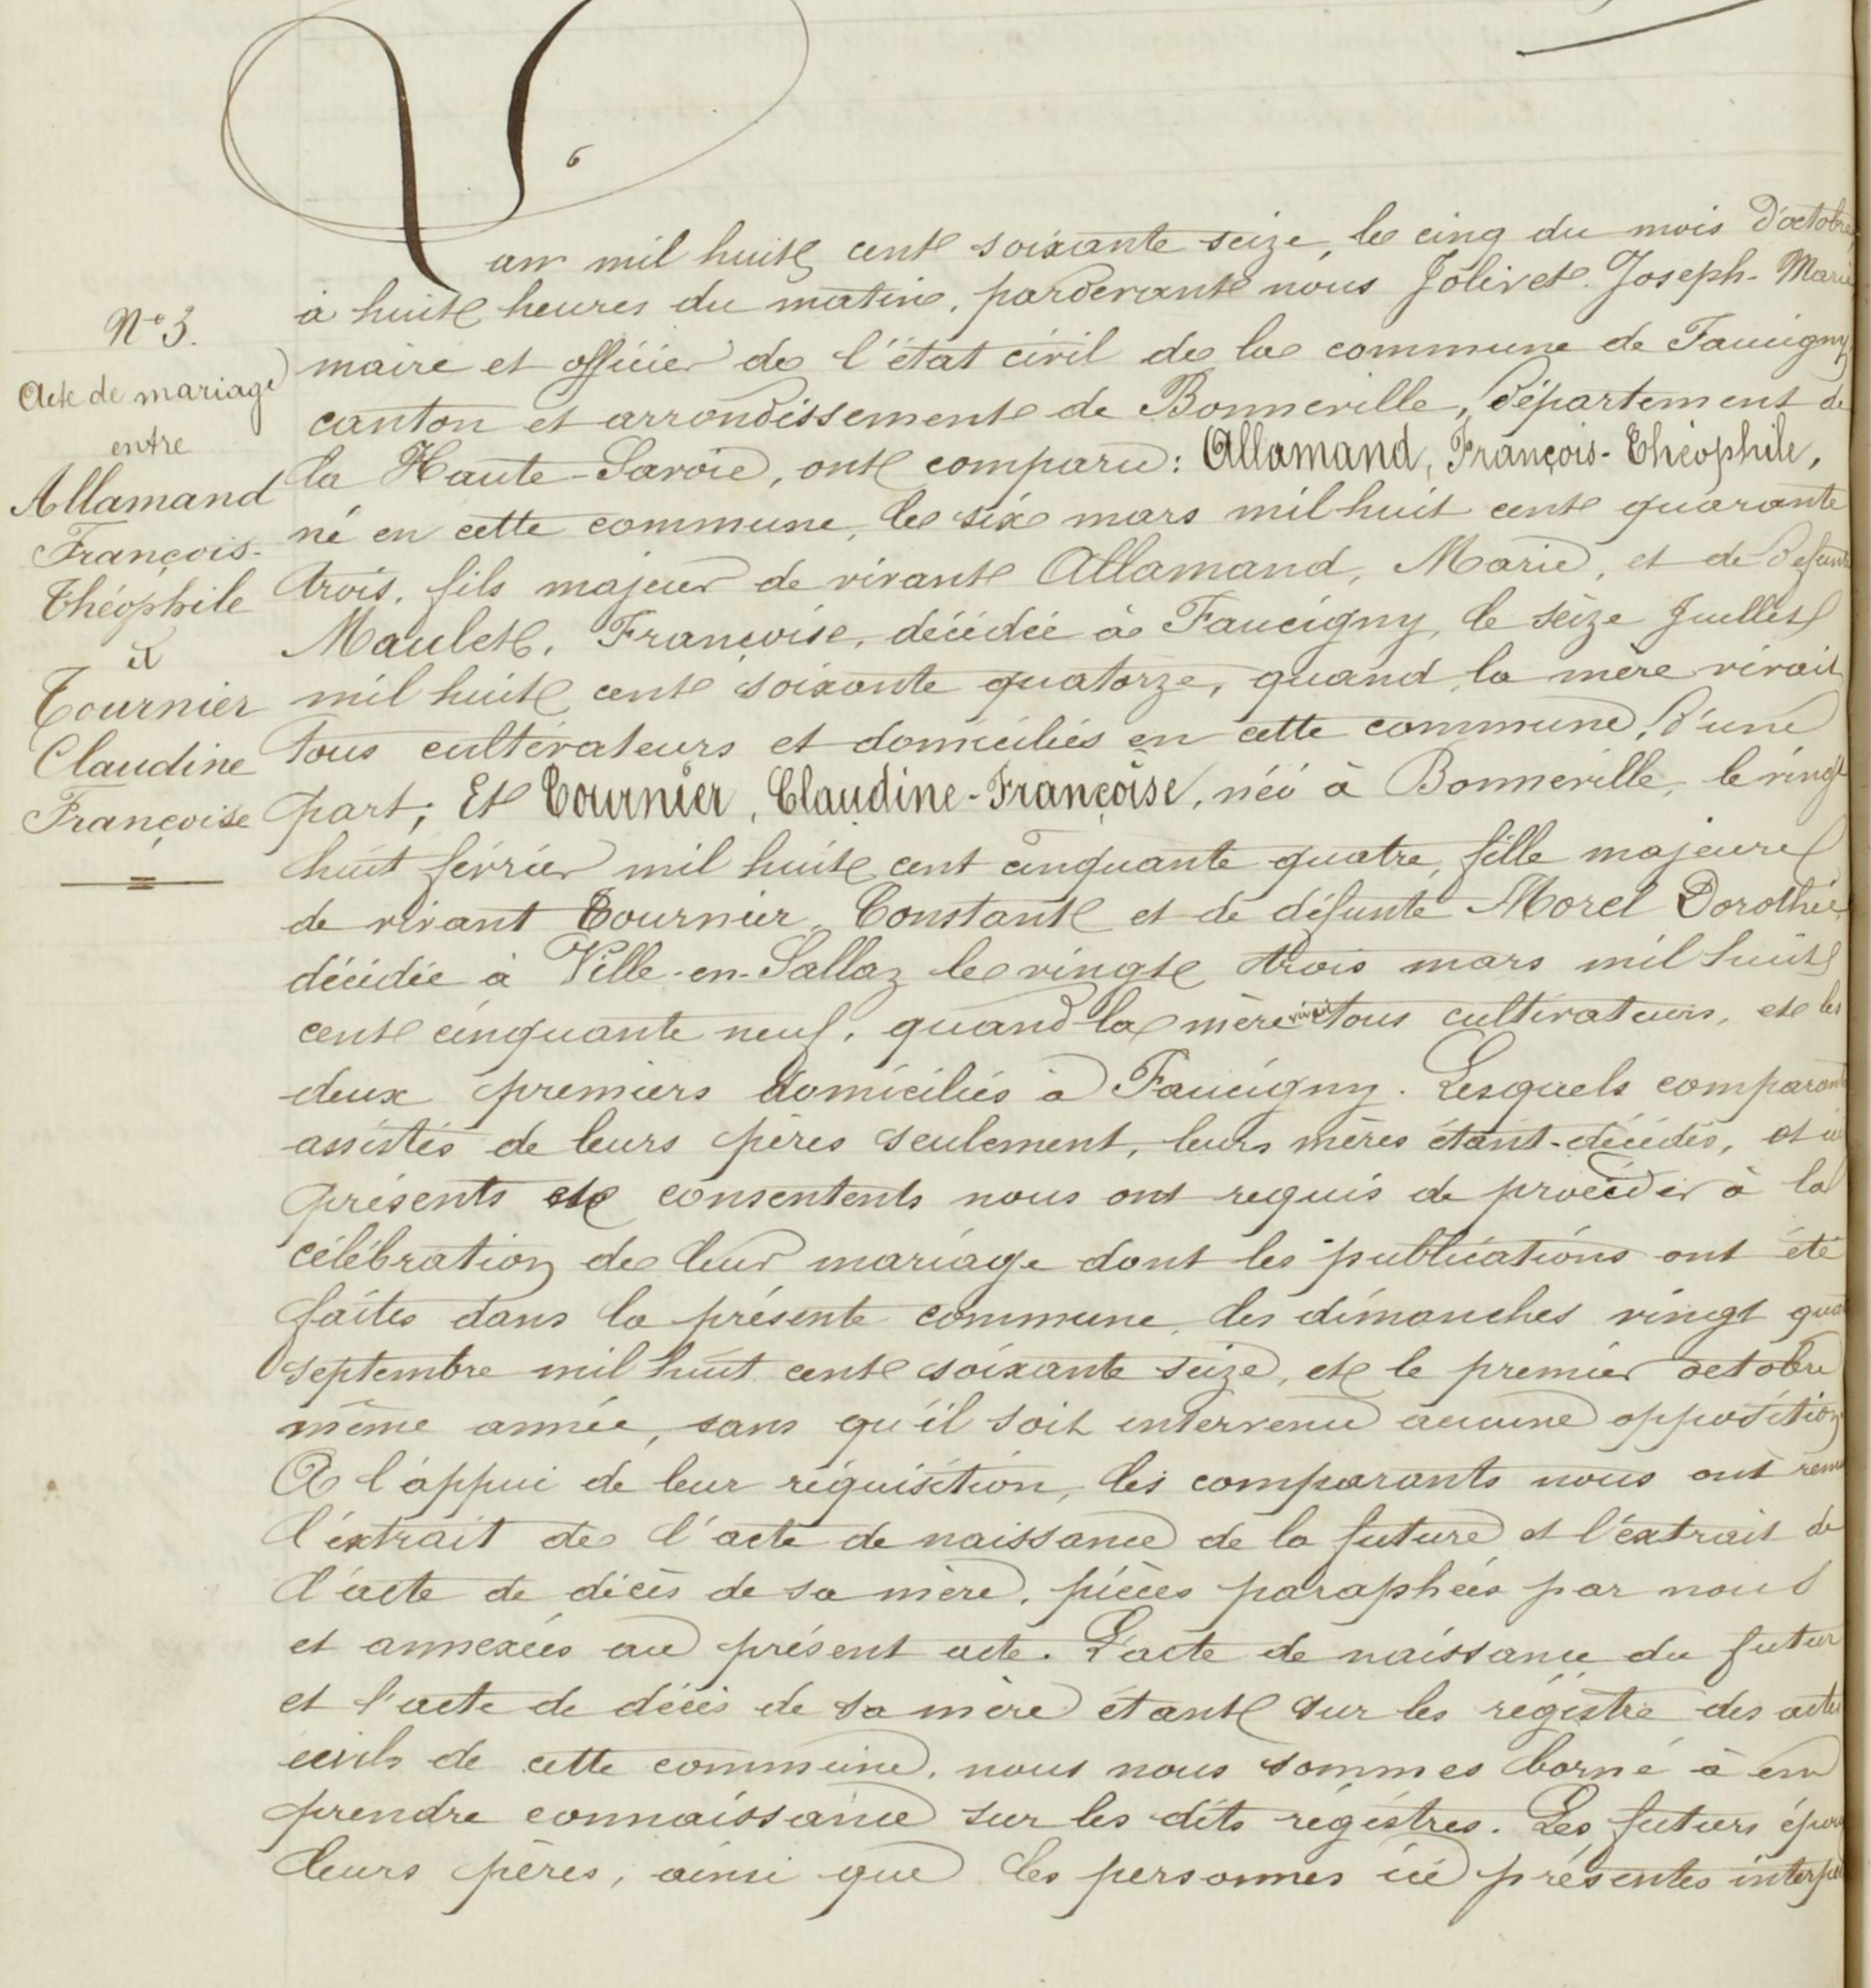 N° 3.
Acte de mariage
entre
Allamand
François-
Théophile
et
Tournier
Claudine
Françoise
L'an mil huit cent soixante seize, le cinq du mois d'octobre
à huit heures du matin, pardevant nous Jolivet Joseph-Marie
maire et officier de l'état civil de la commune de Faucigny
canton et arrondissement de Bonneville, département de
la Haute-Savoie, ont comparu : Allamand, François-Théophile,
né en cette commune, le six mars mil huit cent quarante
trois, fils majeur de vivant Allamand, Marie, et de défunte
Maulet, Françoise, décédée à Faucigny, le seize Juillet
mil huit cent soixante quatorze, quand la mère vivait
tous cultivateurs et domiciliés en cette commune, d'une
part ; Et Tournier, Claudine-Françoise, née à Bonneville, le vingt
huit février mil huit cent cinquante quatre, fille majeure
de vivant Tournier Constant et de défunte Morel Dorothée
décédée à Ville-en-Sallaz le vingt trois mars mil huit
cent cinquante neuf, quand la mère vivait tous cultivateurs, et les
deux premiers domiciliés à Faucigny. Lesquels comparant
assistés de leurs pères seulement, leurs mères étant-décédés, et ici
présents et consentents nous ont requis de procéder à la
célébration de leur mariage dont les publications ont été
faites dans la présente commune les dimanches vingt qua
septembre mil huit cent soixante seize, et le premier octobre
même année, sans qu'il soit intervenu aucune opposition
A l'appui de leur réquisition, les comparants nous ont remi
l'extrait de l'acte de naissance de la future et l'extrait de
l'acte de décès de sa mère, pièces paraphées par nous
et annexées au présent acte. L'acte de naissance du futur
et l'acte de décès de sa mère étant sur les régistre des actes
civils de cette commune, nous nous sommes borné à en
prendre connaissance sur les dits régistres. Les futurs épou
leurs pères, ainsi que les personnes ici présentes interpe